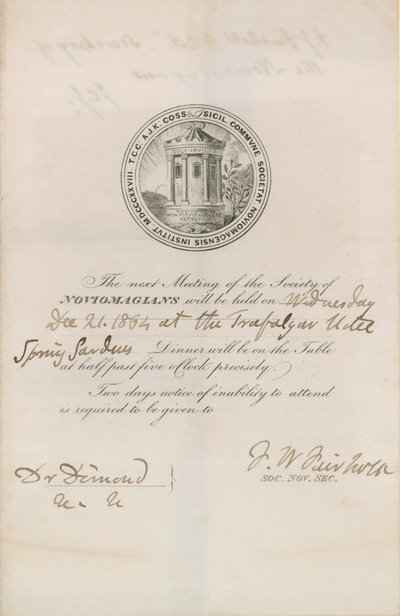 SIGIL. COMMVNE SOCIETAT NOVIOMAGENSIS INSTITVT MDCCCXXVIII T.C.C. A.J.K. COSS.
SOLI INVICTO
NOVIOMAGVS
The next Meeting of the Society of
NOVIOMAGIANS will be held on Wednesday
Dec 21. 1864 at the Trafalgar Hotel
Spring Gardens Dinner will be on the Table
at half past five o'Clock precisely.
Two days notice of inability to attend
is required to be given to
F. W. Fairholt
SOC. NOV. SEC.
Dr Diamond